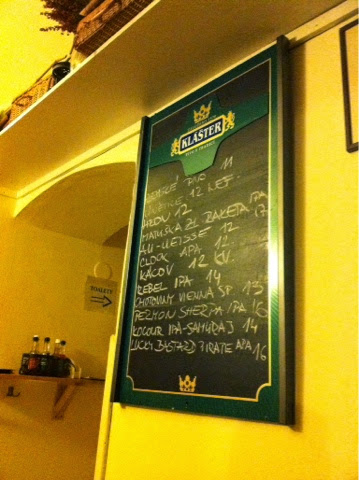 KLÁŠTER
DNO 11
12 NEF.
12
MATUŠKA ZL. RAKETA IPA 17
AU-WEISSE 12
CLOCK APA 12
KÁCOV 12 KV.
REBEL IPA 14
CHOTOVINY VIENNA SP. 13
PERMON SHERPA IPA 16
KOCOUR IPA-SAMURAJ 14
LUCKY BASTARD PIRATE APA 16
TOALETY